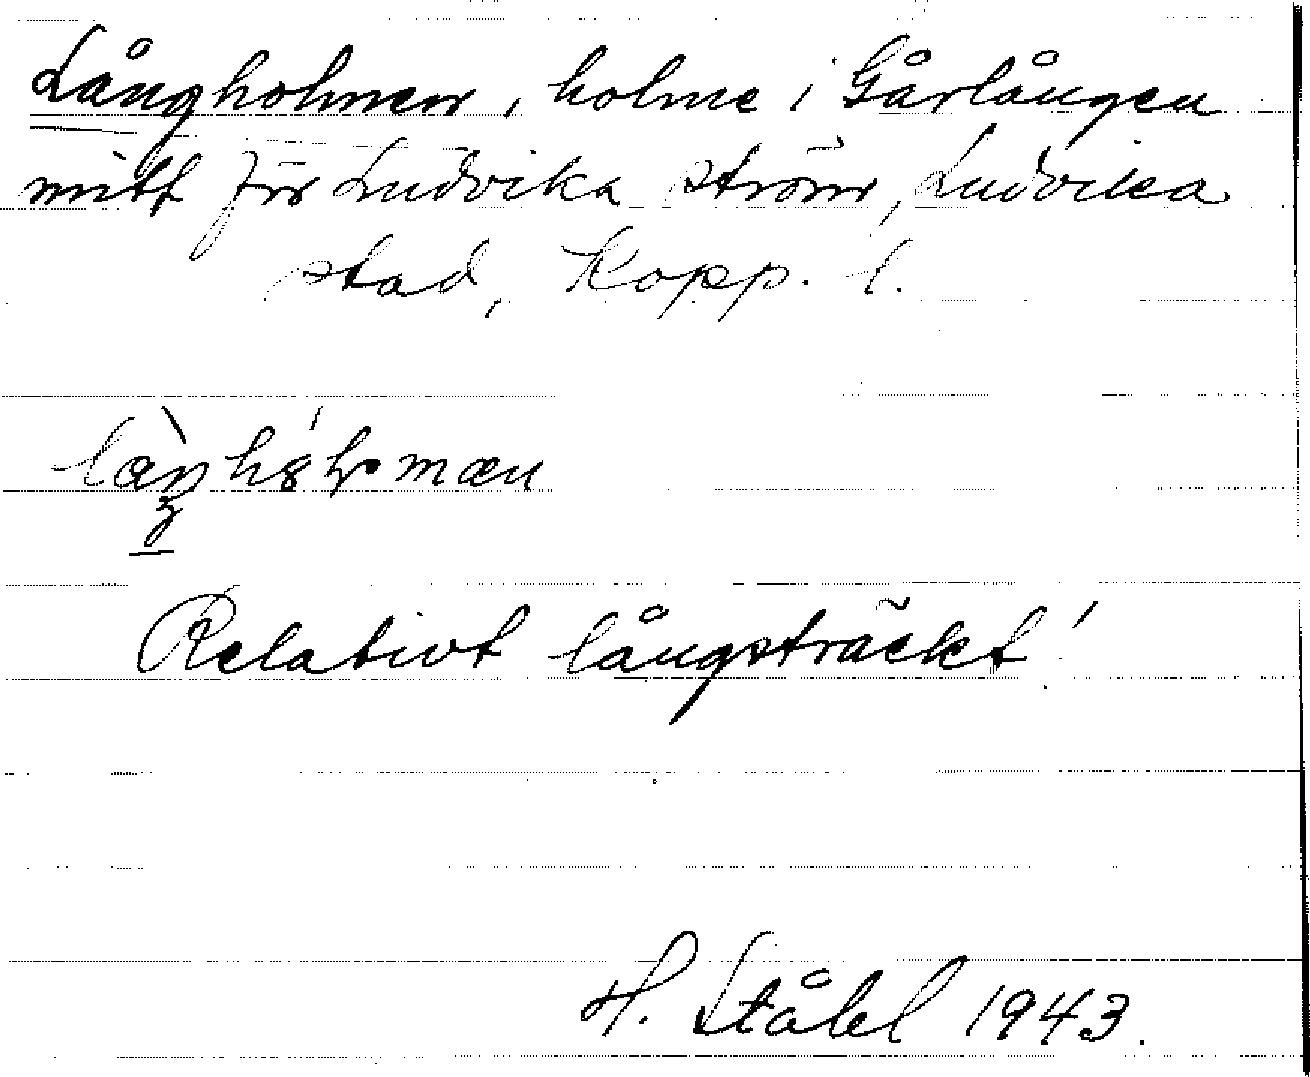 Långholmen, holme i Gårlången
mitt för Ludvika ström, Ludvika
stad, Kopp. l.
Relativt långsträckt!
H. Ståhl 1943.